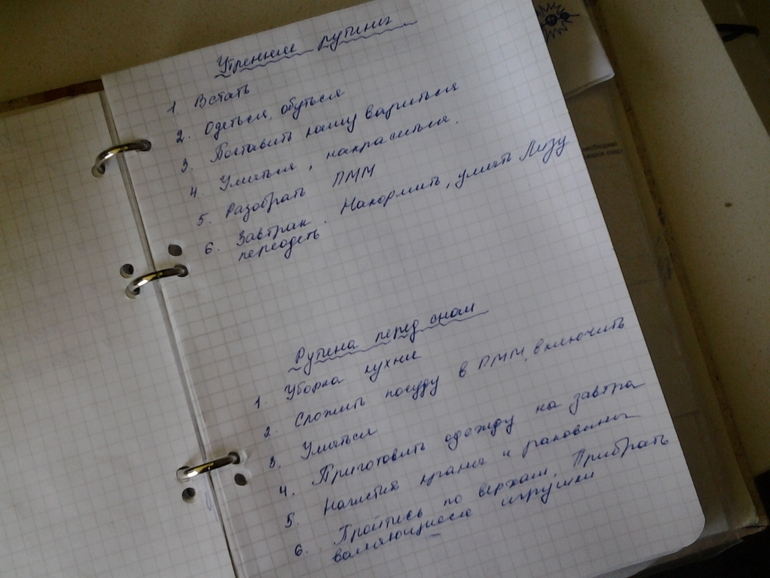 Утренние рутины
1 Встать
2. Одеться, обуться
3. Поставить кашу вариться
4. Умыться, накраситься.
5. Разобрать ПММ
6. Завтрак. Накормить, умыть Лизу
переодеть
Рутина перед сном
1. Уборка кухни
2. Сложить посуду в ПММ, включить
3. Умыться
4. Приготовить одежду на завтра
5. Начистить краны и раковины
6. Пройтись по верхам. Прибрать
валяющиеся игрушки